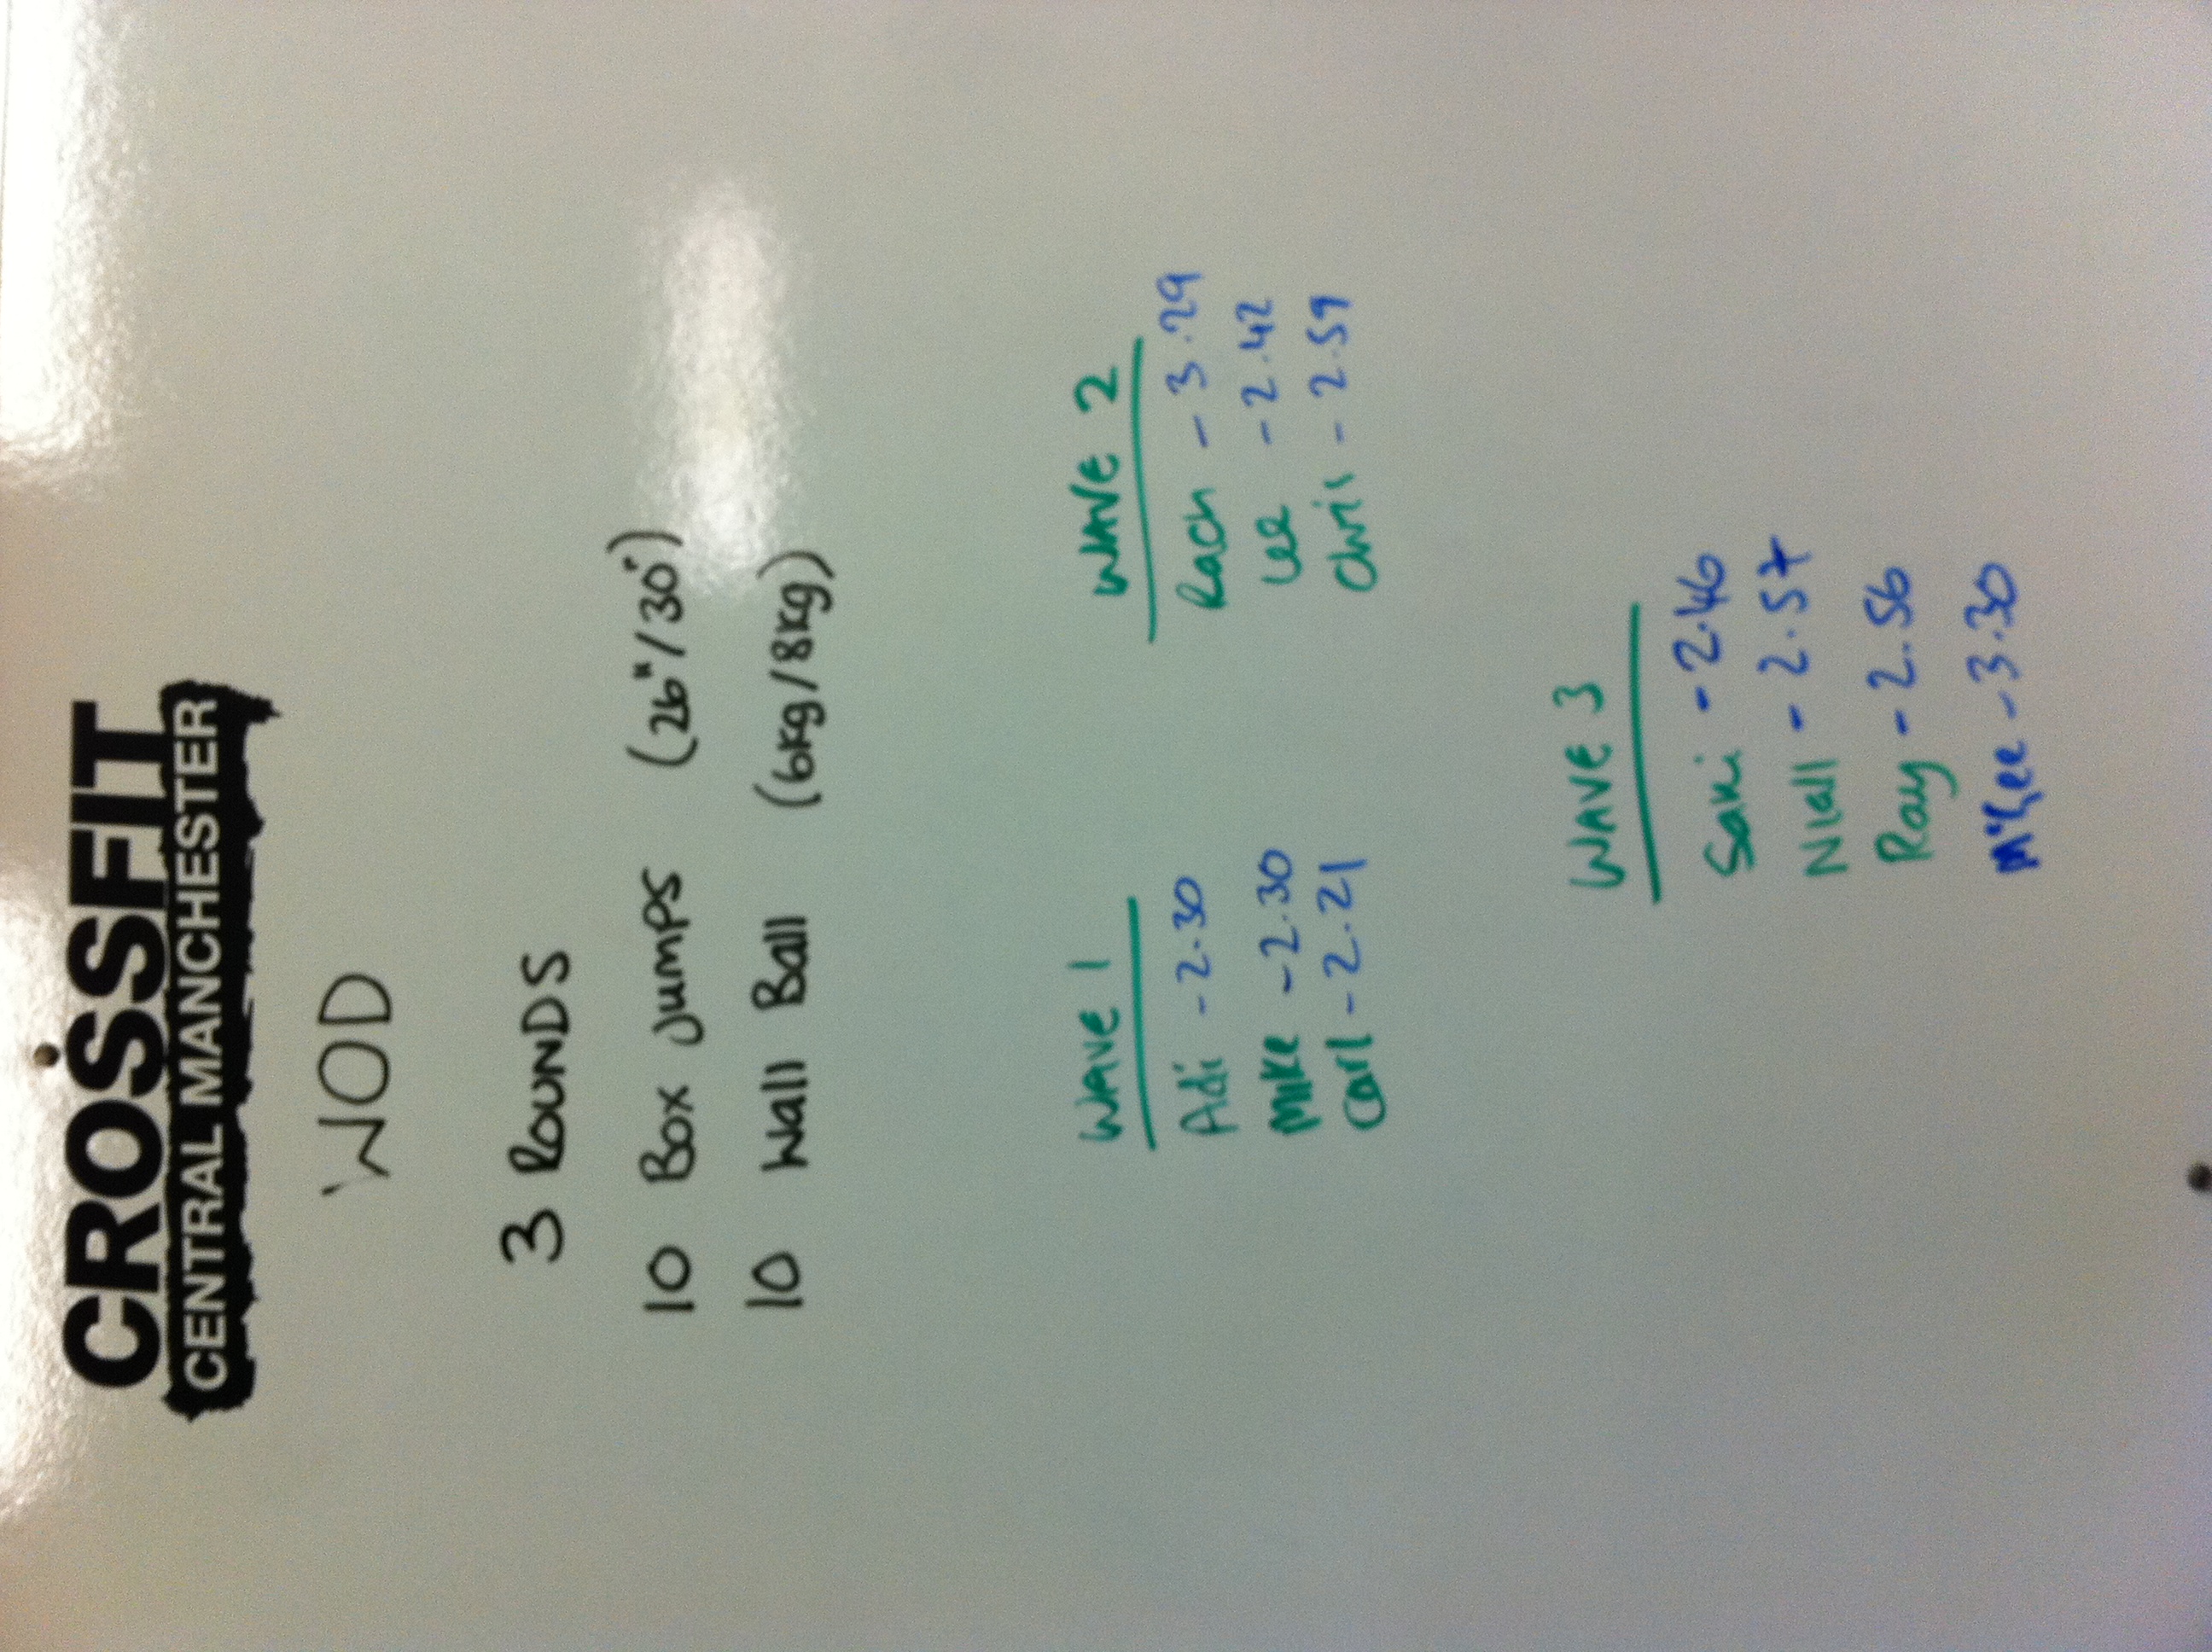 CROSSFIT
CENTRAL MANCHESTER
WOD
3 ROUNDS
10 Box Jumps (26"/30")
10 Wall Ball (6kg/8kg)
WAVE 1
Adi - 2.30
Mike - 2.30
Carl - 2.21
WAVE 2
Rach - 3.29
Lee - 2.42
Chris - 2.59
WAVE 3
Saki - 2.46
Niall - 2.57
Ray - 2.56
- 3.30